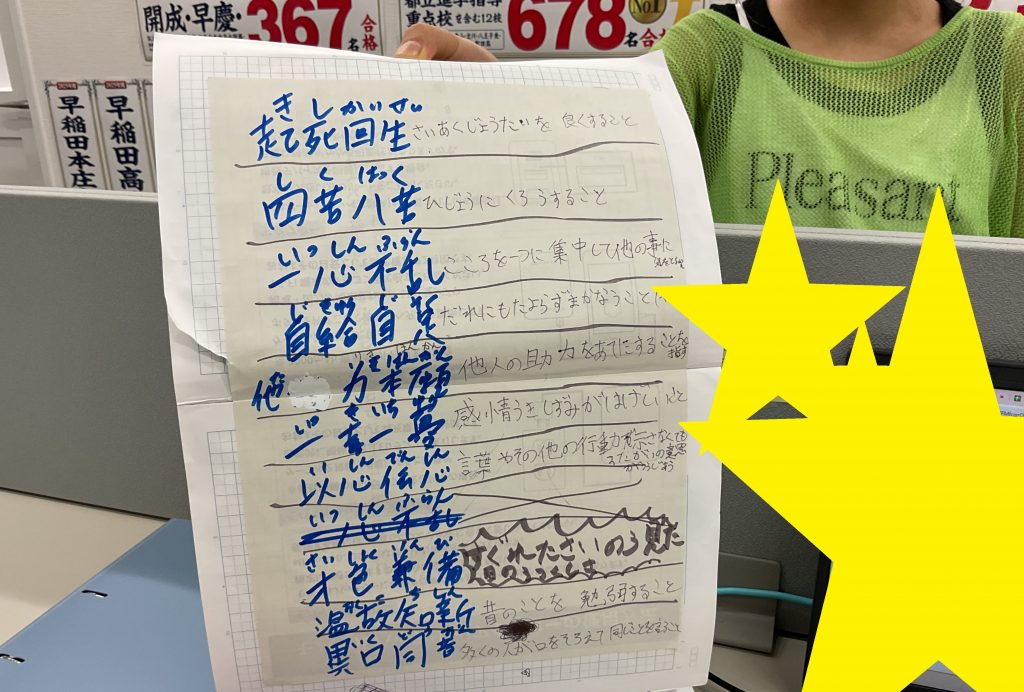 開成・早慶
367名
合格
都立進学指導
重点校を含む12校
678名
No.1
早稲田本庄
早稲田高
Pleasant
きしかいせい
起死回生 さいあくじょうたいを 良くすること
しくはっく
四苦八苦 ひじょうにくろうすること
いっしんふらん
一心不乱 こころを一つに集中して他の事に
じきゅうじそく
自給自足 だれにもたよらずまかなうこと
他力本願 他人の助力をあてにすることを指す
いっきいちゆう
一喜一憂 感情うきしずみがはげしいこと
いしんでんしん
以心伝心 言葉やその他の行動が示さなくても
いっしんふらん
一心不乱
さいしょくけんび
才色兼備 すぐれたさいのう 見た
温故知新 昔のことを 勉強すること
異口同音 多くの人が口をそろえて同じことを言うこと